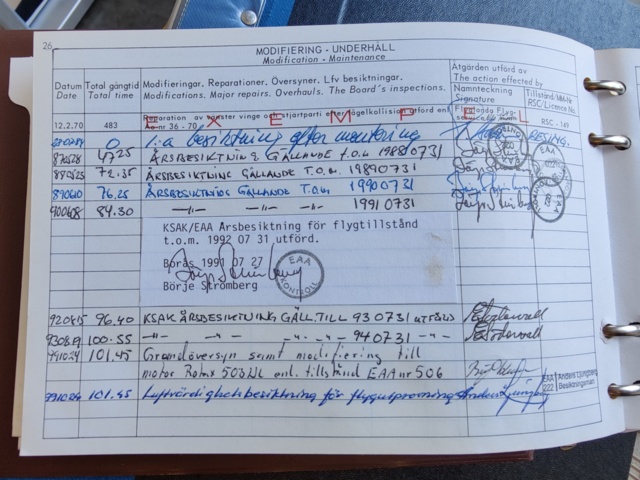 26
MODIFIERING - UNDERHÅLL
Modification - Maintenance
Datum Total gångtid Modifieringar. Reparationer. Översyner. Lfv besiktningar. Åtgärden utförd av
Date Total time Modifications. Major repairs. Overhauls. The Board's inspections. The action effected by
Namnteckning Tillstånd/MM-Nr
Signature RSC/Licence No.
EXEMPEL
12.2.70 483 Reparation av vänster vinge och stjärtparti efter fågelkollision utförd enl. RSC - 149
nr 36 - 70
0 1:a besiktning efter montering BESIKTN.
870528 47.25 ÅRSBESIKTNING GÄLLANDE t.o.m 19880731
880525 72.35 ÅRSBESIKTNING GÄLLANDE T.O.M. 19890731
890610 76.25 ÅRSBESIKTNING GÄLLANDE T.O.M 19900731
900608 84.30 -"- -"- -"- 19910731
KSAK/EAA Årsbesiktning för flygtillstånd
t.o.m. 1992 07 31 utförd.
Borås 1991 07 27
Börje Strömberg
EAA KONTROLL
920815 96.40 KSAK ÅRSBESIKTNING GÄLL. TILL 930731 UTFÖRD
930819 100.55 -"- -"- -"- -"- 940731 -"-
991024 101.45 Grundöversyn samt modifiering till
motor Rotax 503UL enl. tillstånd EAA nr 506
991024 101.45 Luftvärdighetsbesiktning för flygutprovning Anders Ljungberg
EAA 222 Anders Ljungberg
Besiktningsman